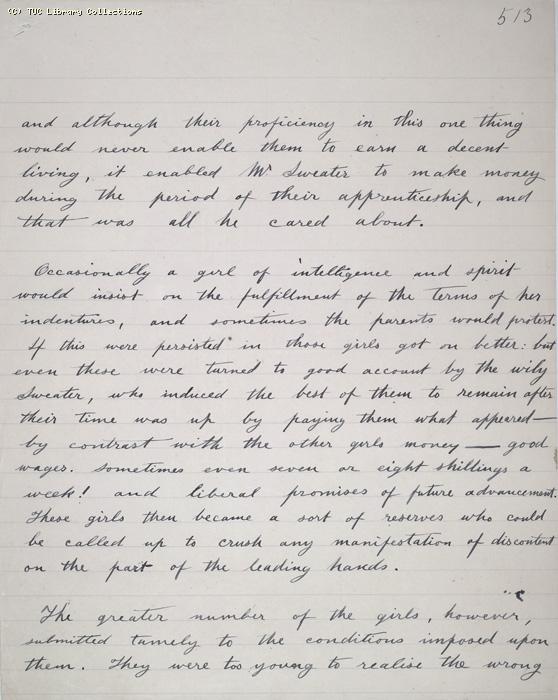 (C) TUC Library Collections
513
and although their proficiency in this one thing
would never enable them to earn a decent
living, it enabled Mr Sweater to make money
during the period of their apprenticeship, and
that was all he cared about.
Occasionally a girl of intelligence and spirit
would insist on the fulfillment of the terms of her
indentures, and sometimes the parents would protest.
If this were persisted in those girls got on better: but
even these were turned to good account by the wily
Sweater, who induced the best of them to remain after
their time was up by paying them what appeared —
by contrast with the other girls money — good
wages. Sometimes even seven or eight shillings a
week! and liberal promises of future advancement.
These girls then became a sort of reserves who could
be called up to crush any manifestation of discontent
on the part of the leading hands.
The greater number of the girls, however,
submitted tamely to the conditions imposed upon
them. They were too young to realise the wrong